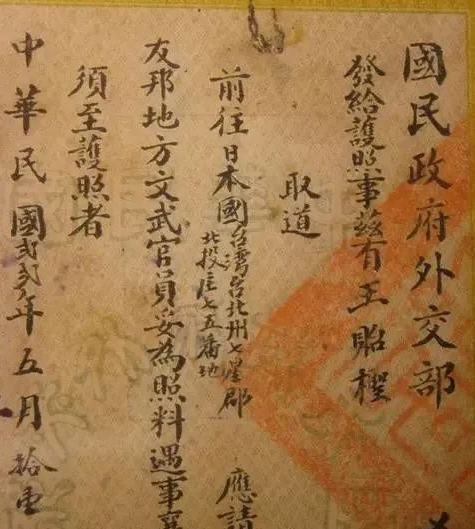 國民政府外交部
發給護照事茲有王貽
取道
前往日本國台灣台北州七星郡
北投庄七五番地
應請
友邦地方文武官員妥為照料遇事襄
須至護照者
中華民國貳貳年五月拾壹